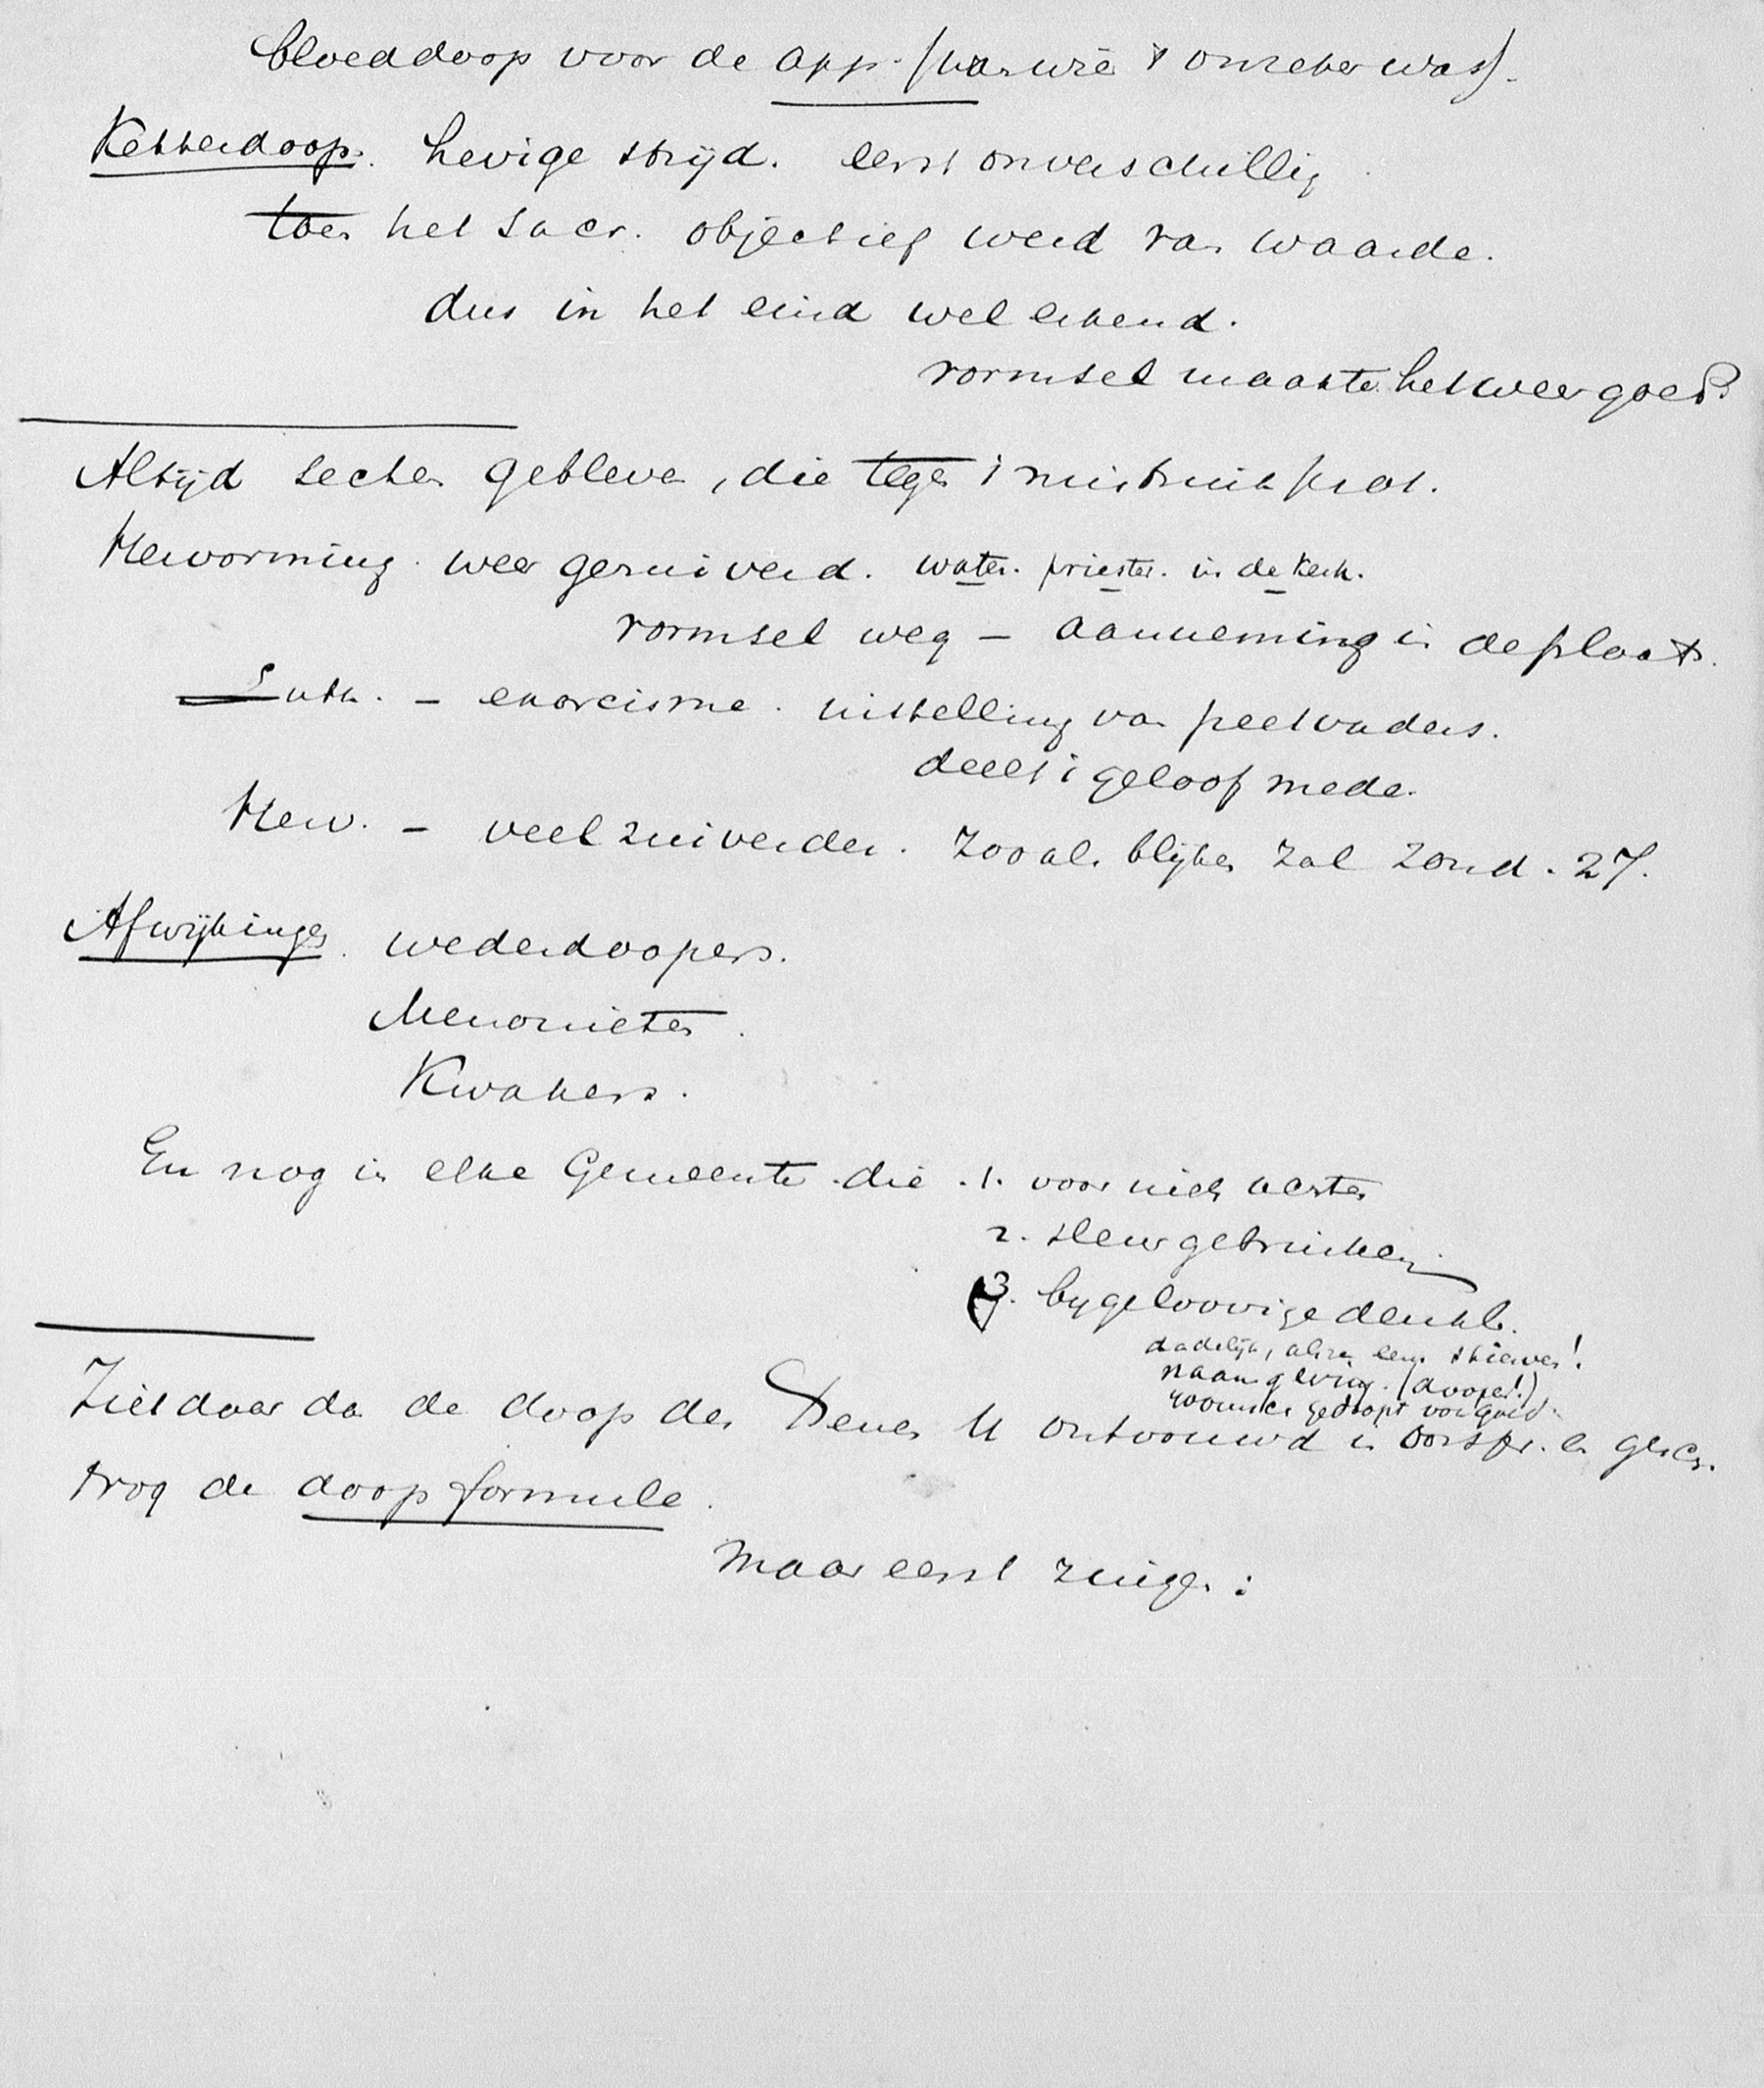 bloeddoop voor de app. (van wie 't onzeker was).
Ketterdoop. hevige strijd. eerst onverschillig
toen het sacr. objectief werd van waarde.
dus in het eind wel erkend.
vormsel maakte het weer goed.
Altijd secten gebleven, die tegen misbruik prot.
Hervorming weer gezuiverd. water. priester. in de Kerk.
vormsel weg — aanneming in de plaats.
Luth. — exorcisme. instelling van peetvaders.
deelt geloof mede.
Herv. — veel zuiverder. Zooals blijken zal Zond. 27.
Afwijkingen. wederdoopers.
Menonieten.
Kwakers.
En nog in elke Gemeente die 1. voor niets achten
2. sleur gebruiken
3. bygeloovige denkb.
dadelijk, als een sterven!
naamgeving. (doopen!)
gedoopt voor goed.
Ziet daar dan de doop des Heeren U ontvouwd in oorspr. en gesch.
nog de doopformule.
Maar eerst zingen: